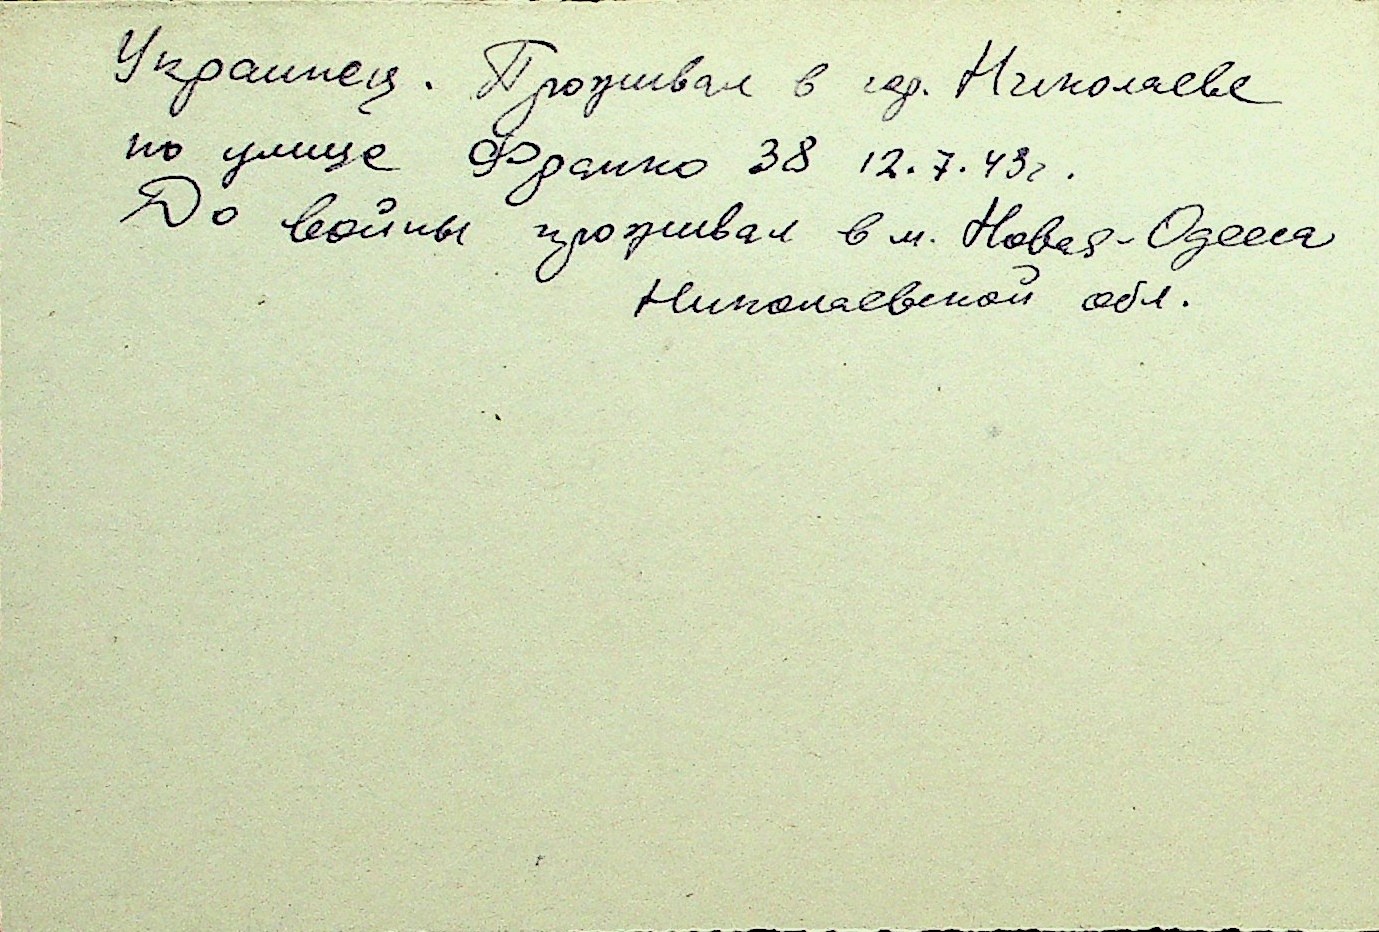 Украинец. Проживал в гор. Николаеве
по улице Франко 38 12.7.43г.
До войны проживал в м. Новая-Одесса
Николаевской обл.